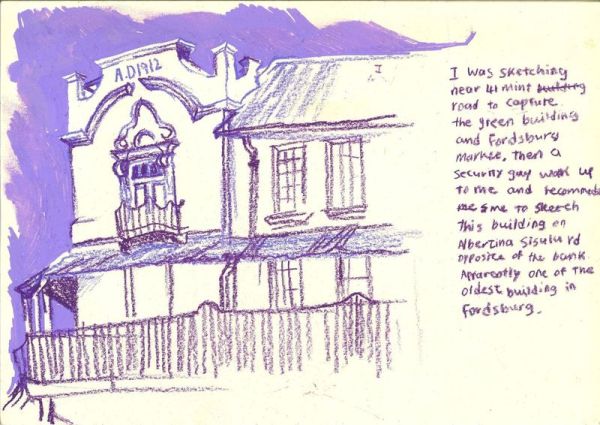 A.D1912
I was sketching
near 41 mint building
road to capture
the green building
and Fordsburg
Market, then a
security guy walk up
to me and recommode
me s me to sketch
this building on
Albertina Sisulu rd
opposite of the bank
Apparently one of the
oldest building in
Fordsburg.